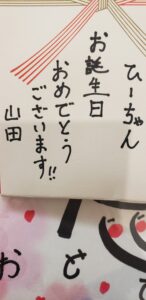 ひーちゃん
お誕生日
おめでとう
ございます!!
山田
おど